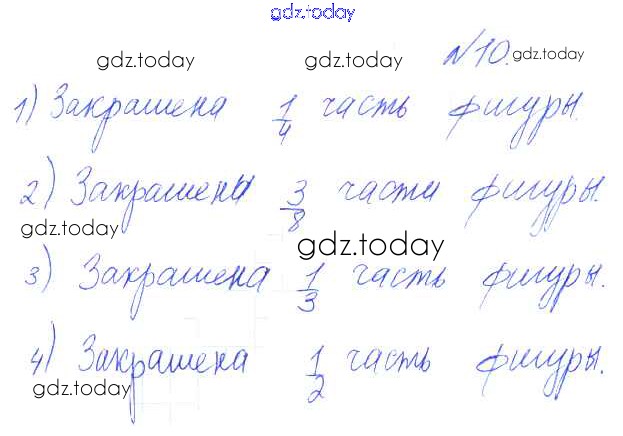 gdz.today
gdz.today gdz.today №10. gdz.today
1) Закрашена 1/4 часть фигуры.
2) Закрашены 3/8 части фигуры.
gdz.today
gdz.today
3) Закрашена 1/3 часть фигуры.
4) Закрашена 1/2 часть фигуры.
gdz.today gdz.today